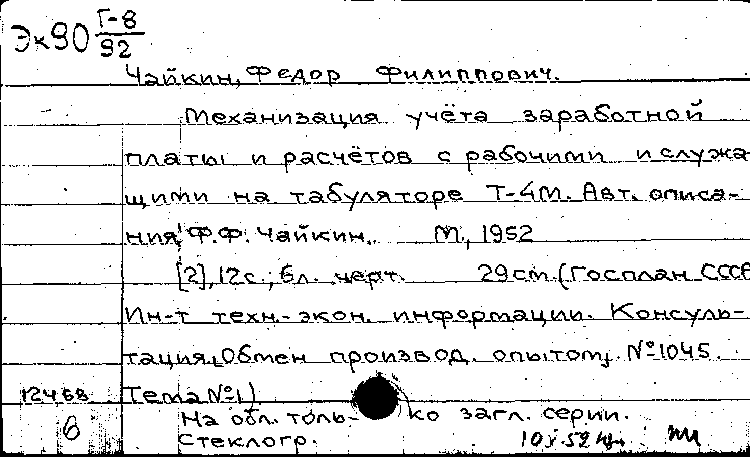 Эк90 Г-8
92
Чайкин, Федор Филиппович.
Механизация учёта заработной
платы и расчётов с рабочими и служа
щими на табуляторе Т-4М. Авт. описа-
ния: Ф.Ф. Чайкин. М., 1952
[2], 12с.; 6л. черт. 29см. (Госплан СССР
Ин-т техн.-экон. информации. Консуль-
тация. Обмен производ. опытом, №1045.
12468 Тема №1)
На обл. толь- ко загл. серии.
6 Стеклогр. 10 X.52